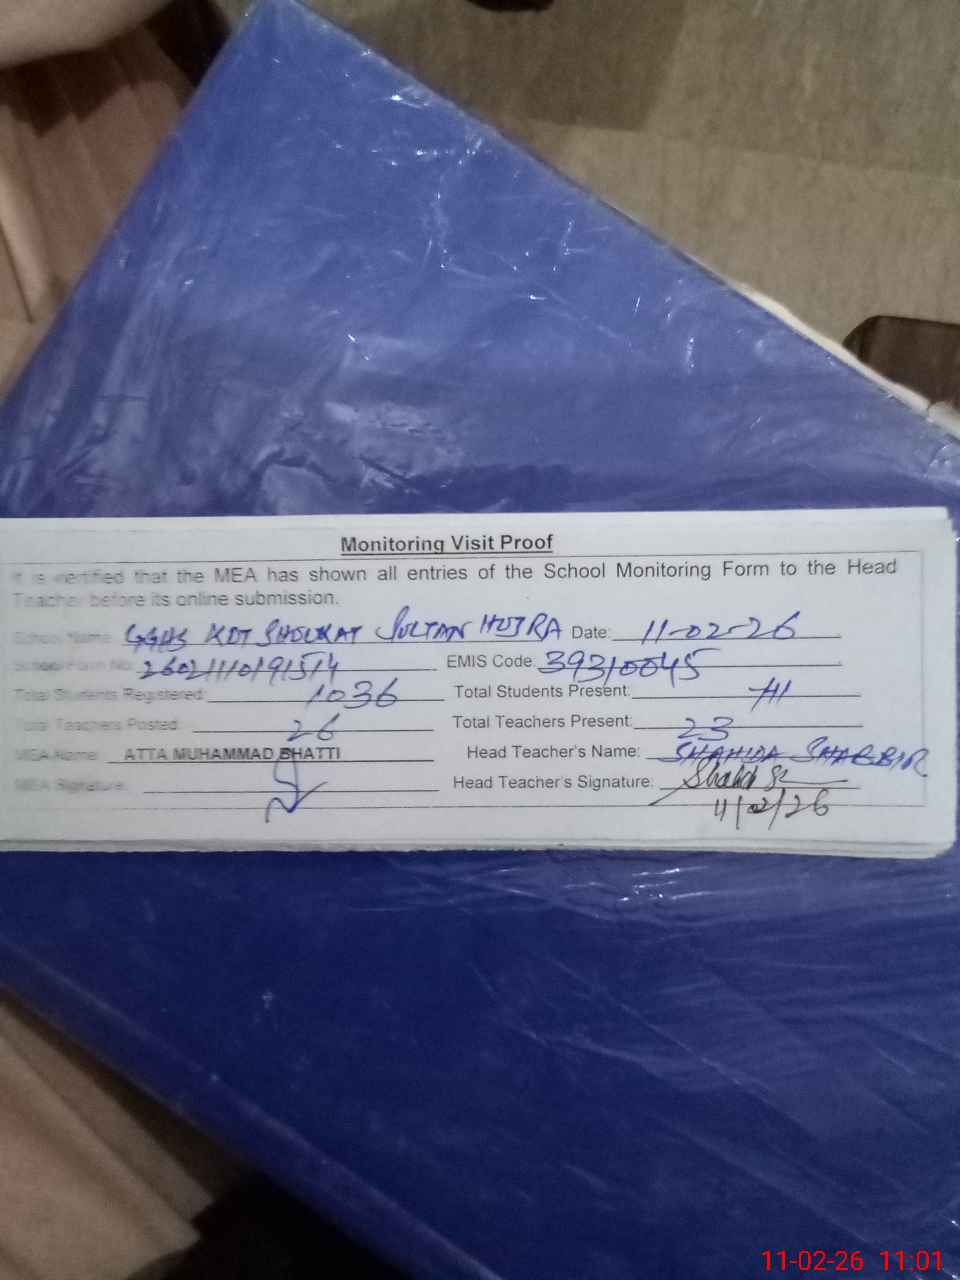 Monitoring Visit Proof
It is certified that the MEA has shown all entries of the School Monitoring Form to the Head
Teacher before its online submission.
School Name: GGHS KOT SHOUKAT SULTAN HUJRA Date: 11-02-26
School Form No: EMIS Code: 39310045
Total Students Registered: 1036 Total Students Present:
Total Teachers Posted: 26 Total Teachers Present: 23
MEA Name: ATTA MUHAMMAD BHATTI Head Teacher's Name: SHAHIDA SHABBIR
MEA Signature: Head Teacher's Signature:
11/02/26
11-02-26 11:01